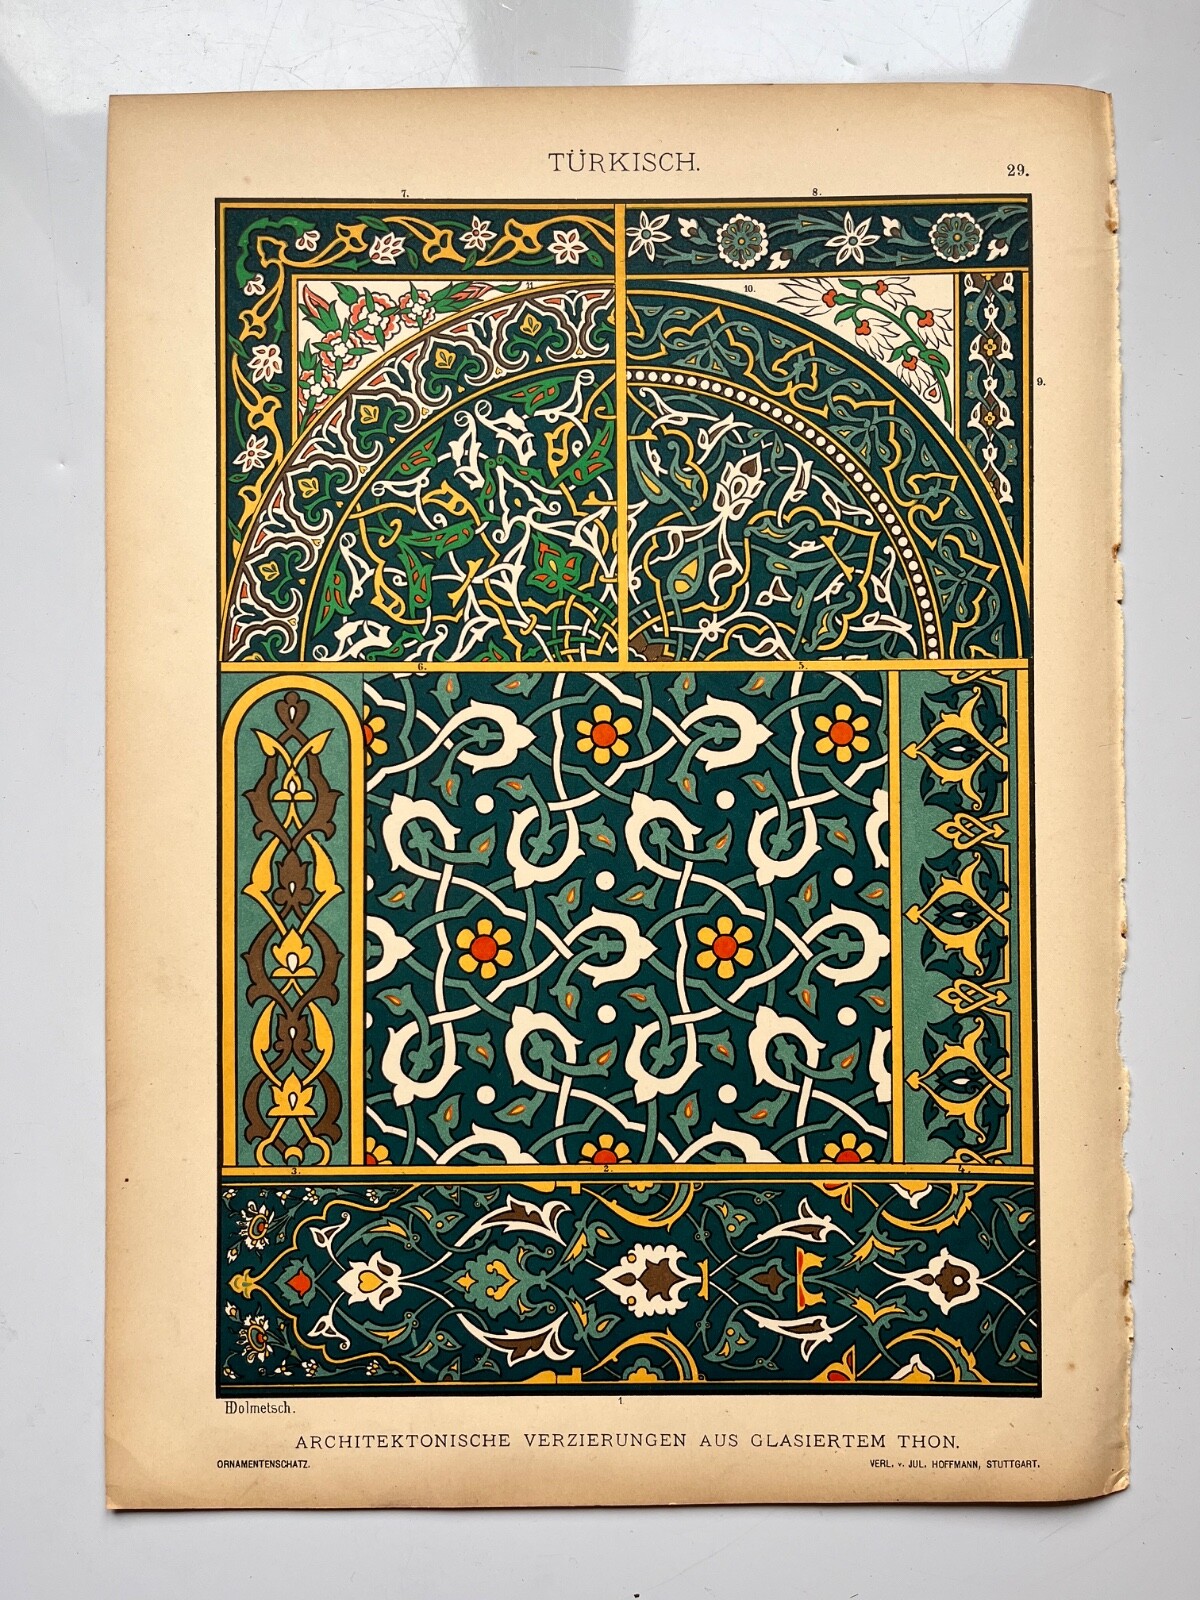 TÜRKISCH.
29.
7.
8.
11
10.
9.
6.
5.
3.
2.
4.
1
HDolmetsch.
ARCHITEKTONISCHE VERZIERUNGEN AUS GLASIERTEM THON.
ORNAMENTENSCHATZ.
VERL. v. JUL. HOFFMANN, STUTTGART.